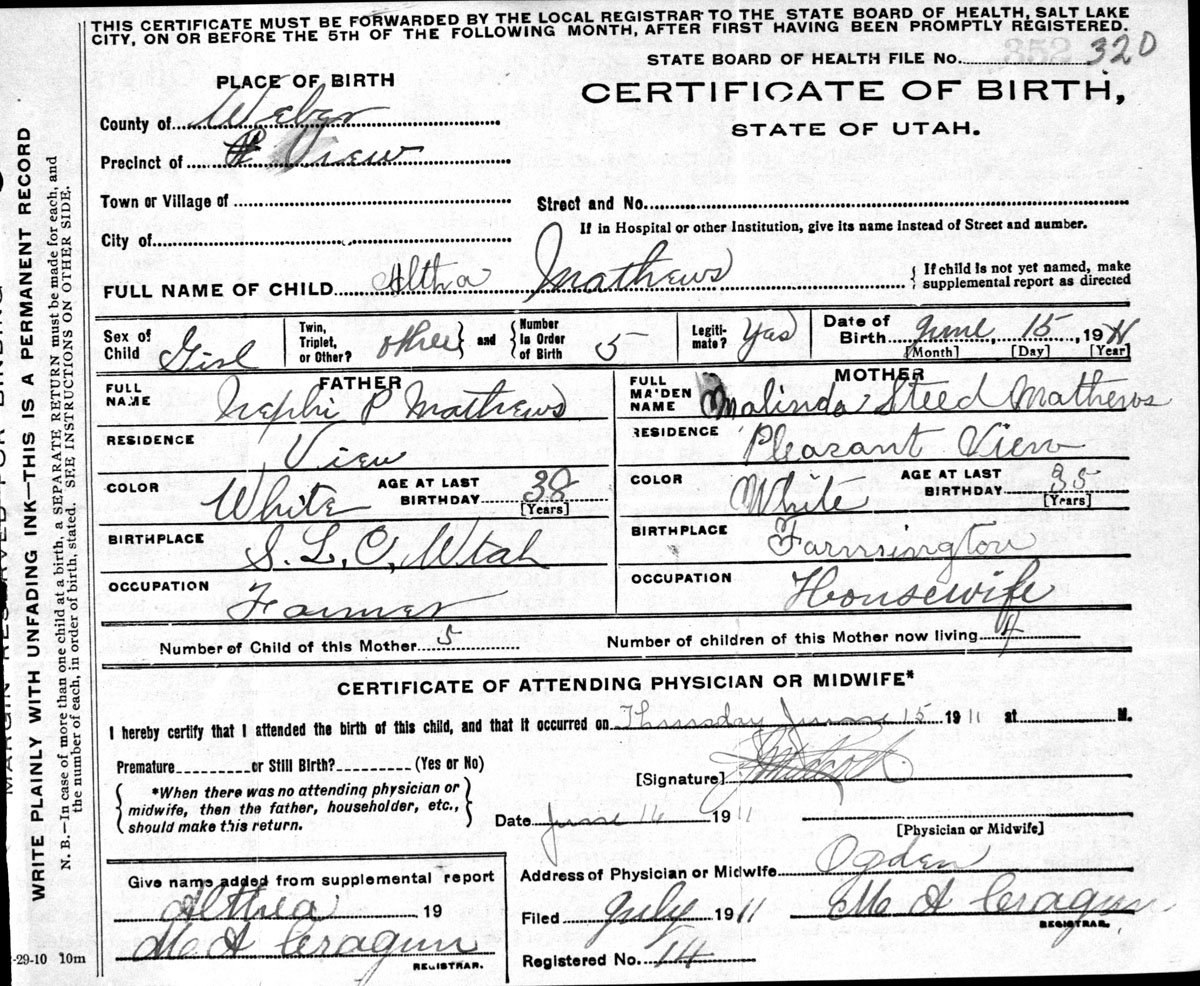 THIS CERTIFICATE MUST BE FORWARDED BY THE LOCAL REGISTRAR TO THE STATE BOARD OF HEALTH, SALT LAKE
CITY, ON OR BEFORE THE 5TH OF THE FOLLOWING MONTH, AFTER FIRST HAVING BEEN PROMPTLY REGISTERED.
STATE BOARD OF HEALTH FILE No. 320
PLACE OF BIRTH
CERTIFICATE OF BIRTH,
STATE OF UTAH.
County of Weber
Precinct of P View
Town or Village of
Street and No.
City of
If in Hospital or other Institution, give its name instead of Street and number.
FULL NAME OF CHILD Altha Mathews
{ If child is not yet named, make
supplemental report as directed
Sex of Child Girl
Twin, Triplet, or Other? othree } and { Number In Order of Birth 5
Legiti-mate? Yas
Date of Birth June, 15, 1911
[Month] [Day] [Year]
FATHER
FULL NAME Nephi P Mathews
RESIDENCE View
COLOR White AGE AT LAST BIRTHDAY 38 [Years]
BIRTHPLACE S. L. C, Utah
OCCUPATION Farmer
MOTHER
FULL MAIDEN NAME Malinda Steed Mathews
RESIDENCE Pleasant View
COLOR White AGE AT LAST BIRTHDAY 35 [Years]
BIRTHPLACE Farmington
OCCUPATION Housewife
Number of Child of this Mother 5 Number of children of this Mother now living
CERTIFICATE OF ATTENDING PHYSICIAN OR MIDWIFE*
I hereby certify that I attended the birth of this child, and that it occurred on Thursday June 15 1911 at M.
Premature or Still Birth? (Yes or No)
[Signature]
{ *When there was no attending physician or
midwife, then the father, householder, etc.,
should make this return. }
Date June 16 1911
[Physician or Midwife]
Give name added from supplemental report
Althea 19
M A Cragun
REGISTRAR.
Address of Physician or Midwife Ogden
Filed July 1911 M A Cragun
REGISTRAR.
Registered No. 14
-29-10 10m
WRITE PLAINLY WITH UNFADING INK—THIS IS A PERMANENT RECORD
N. B.—In case of more than one child at a birth, a SEPARATE RETURN must be made for each, and
the number of each, in order of birth, stated. SEE INSTRUCTIONS ON OTHER SIDE.